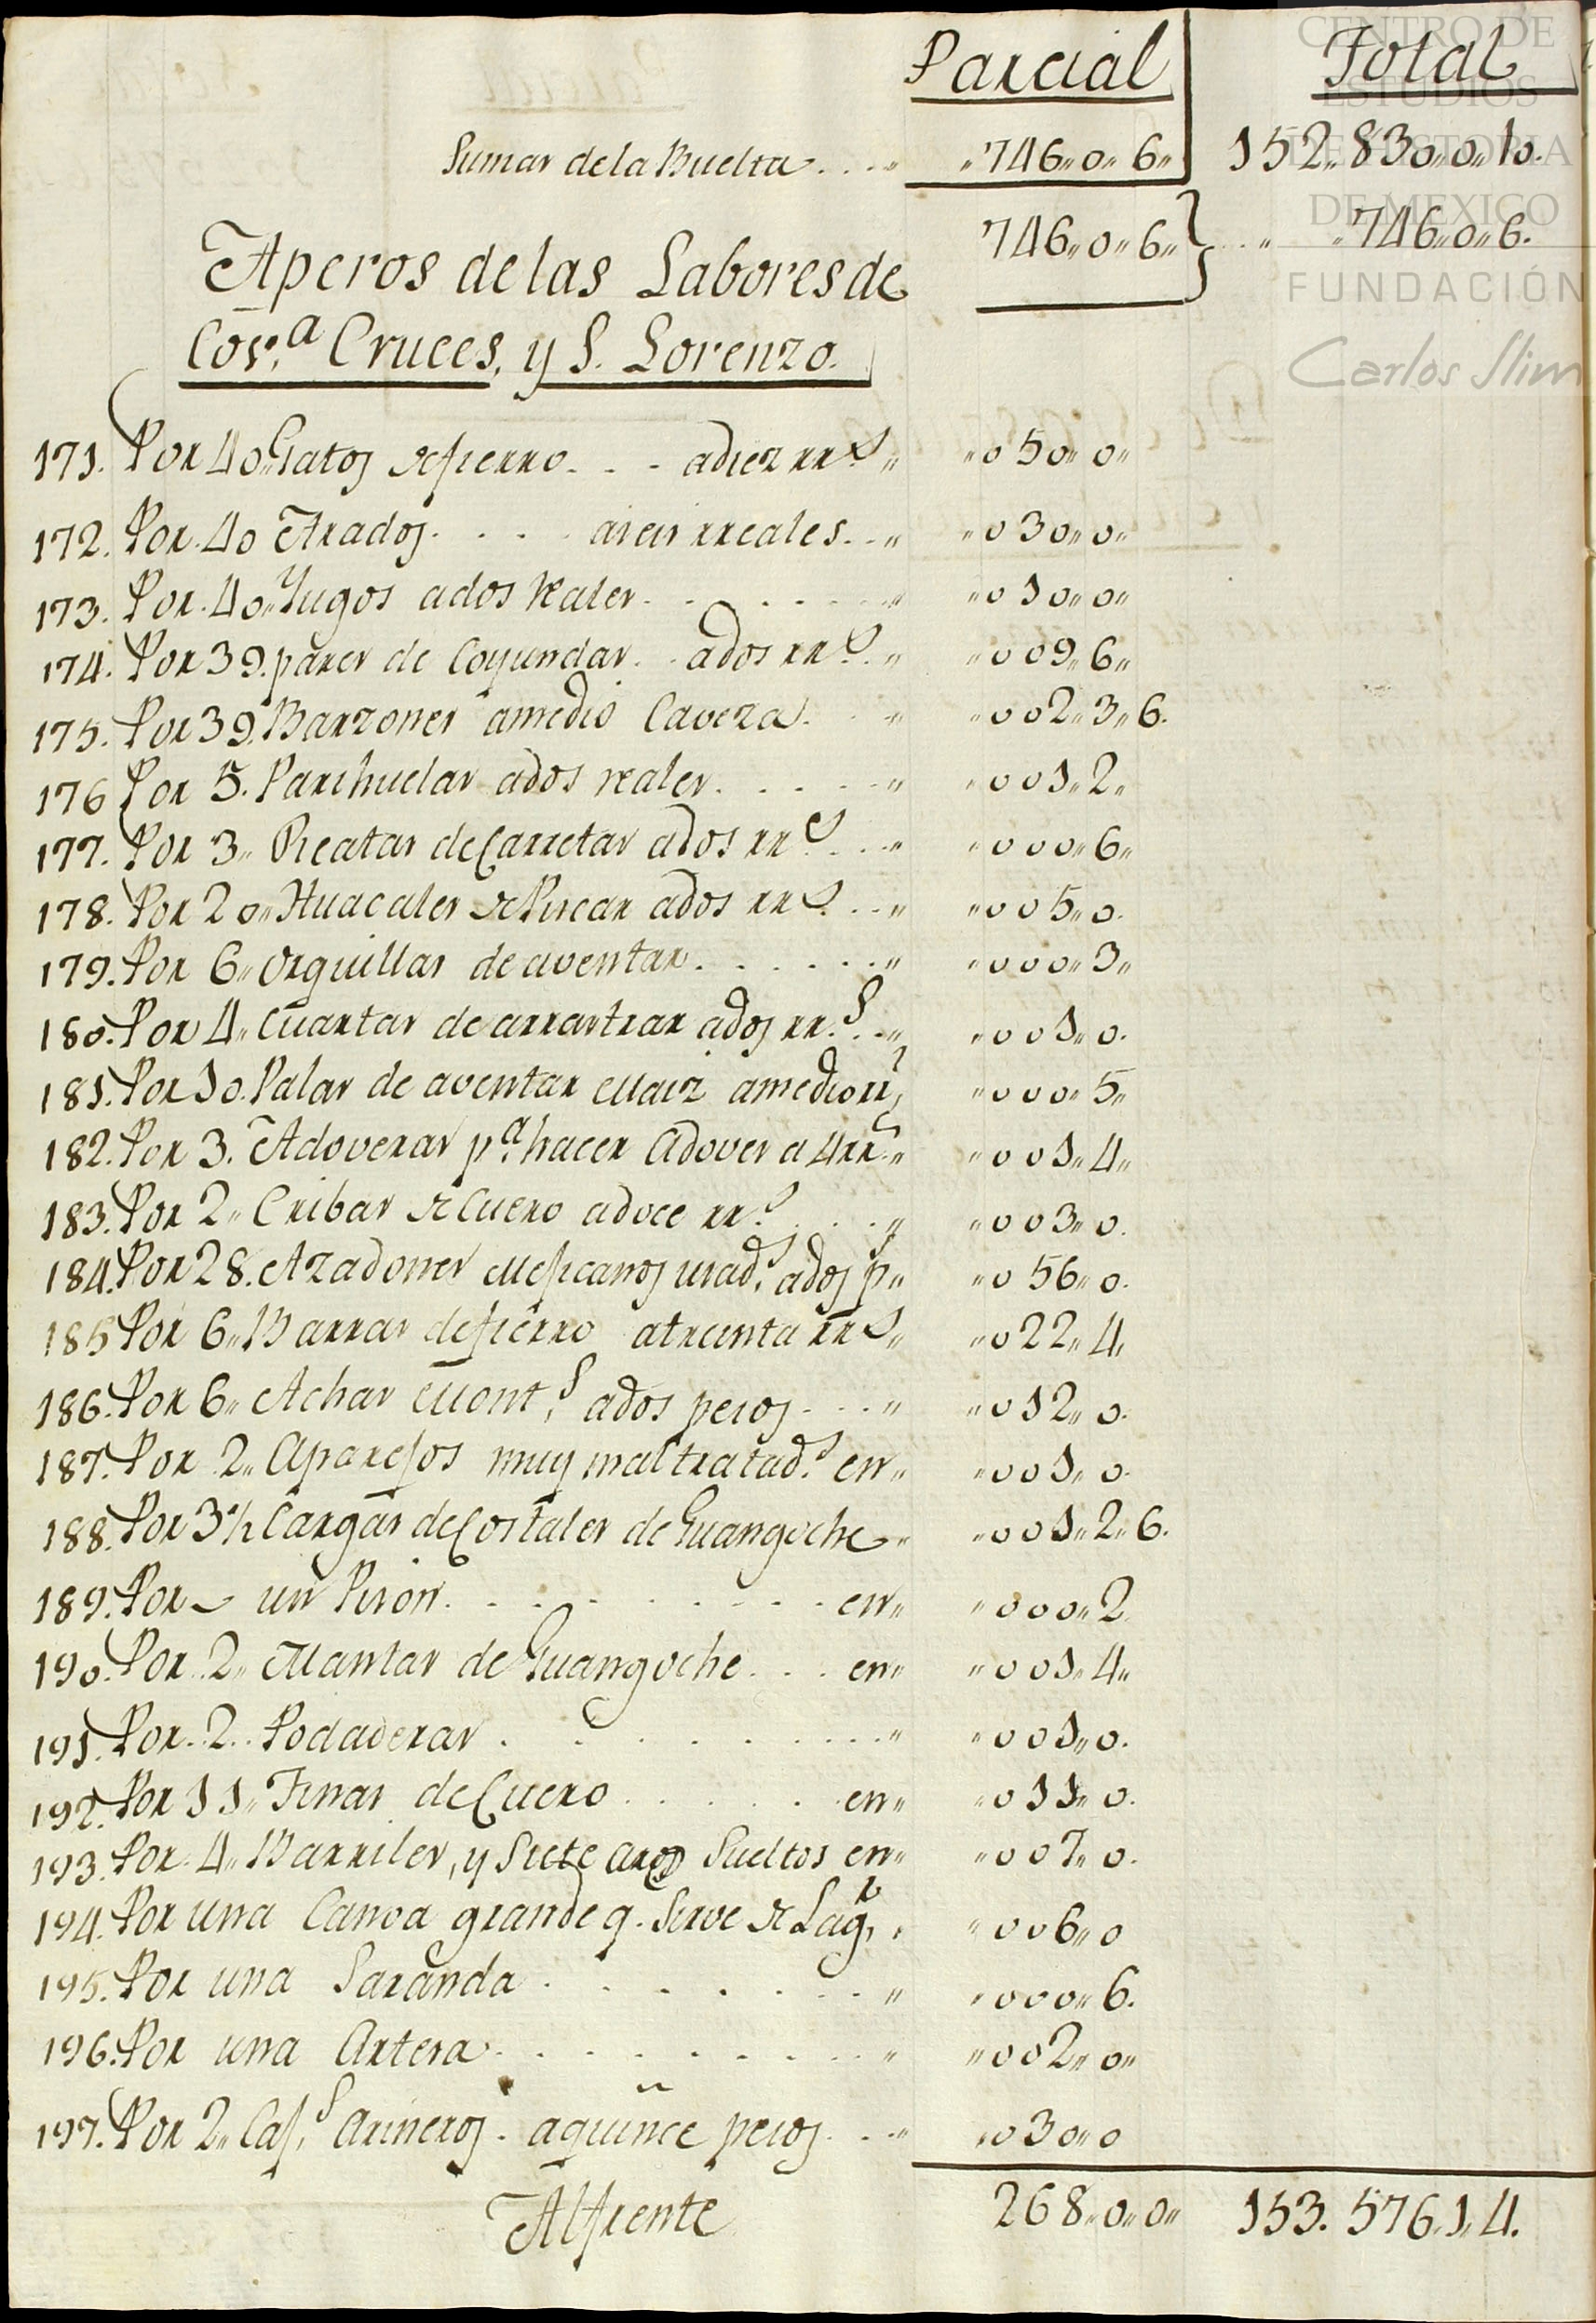 Parcial Total
Sumas de la Buelta .... "746,,0,,6,, 152,,830,,0,,10.
746,,0,,6,, } .. " "746,,0,,6.
Aperos de las Labores de
Cos.ª Cruces, y S. Lorenzo.
171. Por 40,, Gatos de fierro. . . a diez rr.s ,, ,,050,,0,,
172. Por. 40 Arados. . . . a seis rreales. .. ,, ,,030,,0,,
173. Por. 40,, Yugos a dos reales. . . . . . . ,, ,,010,,0,,
174. Por 39. pares de Coyundas. . a dos rr.s . ,, ,,009,,6,,
175. Por 39. Barzones a medio Caveza. . . ,, ,,002,,3,,6.
176 Por 5. Parihuelas a dos reales. . . . . . ,, ,,001,,2,,
177. Por 3,, Reatas de Carretas a dos rr.s . .. ,, ,,000,,6,,
178. Por 20,, Huacales de Piscar a dos rr.s . .. ,, ,,005,,0.
179. Por 6,, Orquillas de aventar. . . . . . ,, ,,000,,3,,
180. Por 4,, Cuartas de arrastrar a dos rr.s . .. ,, ,,001,,0.
181. Por 10. Palas de aventar Maiz a medio rr.s ,,000,,5,,
182. Por 3. Adoveras p.ª hacer Adoves a 4 rr.s ,, ,,001,,4,,
183. Por 2,, Cribas de Cuero a doce rr.s . . .. ,, ,,003,,0.
184. Por 28. Azadones Mejicanos usad.s a dos p.s ,, ,,056,,0.
185 Por 6,, Barras de fierro a treinta rr.s ,, ,,022,,4,,
186. Por 6,, Achas Mont.s a dos pesos. . .. ,, ,,012,,0.
187. Por 2,, Aparejos muy maltratad.s en ,, ,,001,,0.
188. Por 3½ Cargas de Costales de Guangoche ,, ,,001,,2,,6.
189. Por un Pison. . . . . . . . . . en ,, ,,000,,2.
190. Por. 2,, Mantas de Guangoche. . . en ,, ,,001,,4,,
191. Por. 2.. Podaderas . . . . . . . . . .. ,, ,,001,,0.
192. Por 11,, Tinas de Cuero . . . . . . en ,, ,,011,,0.
193. Por. 4,, Barriles, y Siete aros Sueltos en ,, ,,007,,0.
194. Por una Canoa grande q. Sirve de Lag.r , ,,006,,0
195. Por una Saranda . . . . . . . .. ,, ,,000,,6.
196. Por una Artesa . . . . . . . . . ,, ,,002,,0,,
197. Por 2,, Caj.s Arineros. a quince pesos. . .. ,, ,,030,,0
Al frente 268,,0,,0,, 153. 576,,1,,4.
CENTRO DE
ESTUDIOS
DE HISTORIA
DE MEXICO
FUNDACIÓN
Carlos Slim